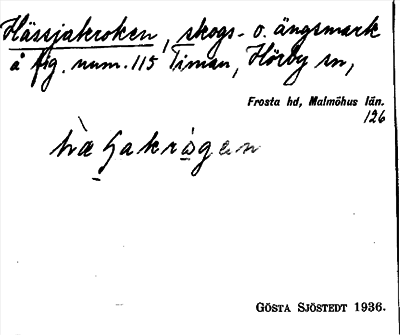 Hässjakroken, skogs- o. ängsmark
å fig. num. 115 Timan, Hörby sn,
Frosta hd, Malmöhus län.
126
GÖSTA SJÖSTEDT 1936.